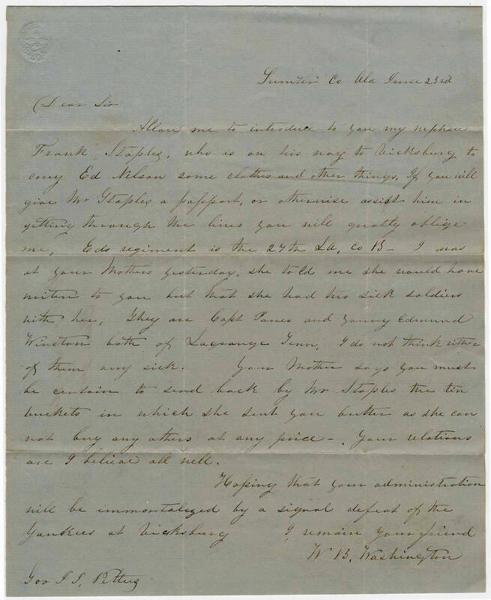 Sumter Co Ala June 23rd
Dear Sir
Allow me to introduce to you my nephew
Frank Staples, who is on his way to Vicksburg to
carry Ed Nelson some clothes and other things. If you will
give Mr Staples a passport, or otherwise assist him in
getting through the lines you will greatly oblige
me, Eds regiment is the 27th La, co B - I was
at your Mothers yesterday, she told me she would have
writen to you but that she had two sick soldiers
with her, They are Capt Jones and young Edmund
Winston both of Lagrange Tenn, I do not think either
of them very sick. Your Mother says you must
be certain to send back by Mr Staples the tin
buckets in which she sent you butter as she can
not buy any others at any price -. Your relations
are I believe all well.
Hoping that your administration
will be immortalized by a signal defeat of the
Yankees at Vicksburg I, remain your friend
W B. Washington
Gov J J. Pettus